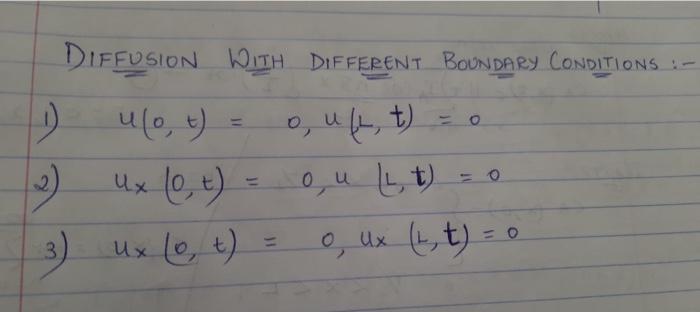 DIFFUSION WITH DIFFERENT BOUNDARY CONDITIONS :-
1) u(0, t) = 0, u(L, t) = 0
2) ux (0, t) = 0, u (L, t) = 0
3) ux (0, t) = 0, ux (L, t) = 0